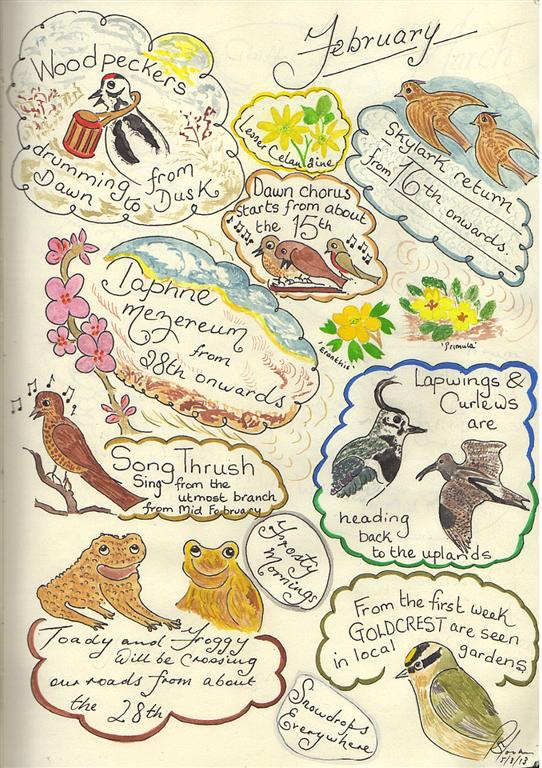 February
Woodpeckers
drumming from
Dawn to Dusk
Lesser Celandine
Skylark return
from 16th
onwards.
Dawn chorus
Starts from about
the 15th
Daphne
mezereum
from
28th onwards
'Eranthis'
'Primula'
Lapwings &
Curlews
are
heading
back
to the uplands
Song Thrush
Sing from the
utmost branch
from Mid February
Frosty
Mornings
Toady and Froggy
Will be crossing
our roads from about
the 28th
From the first week
GOLDCREST are seen
in local gardens
Snowdrops
Everywhere
5/2/13